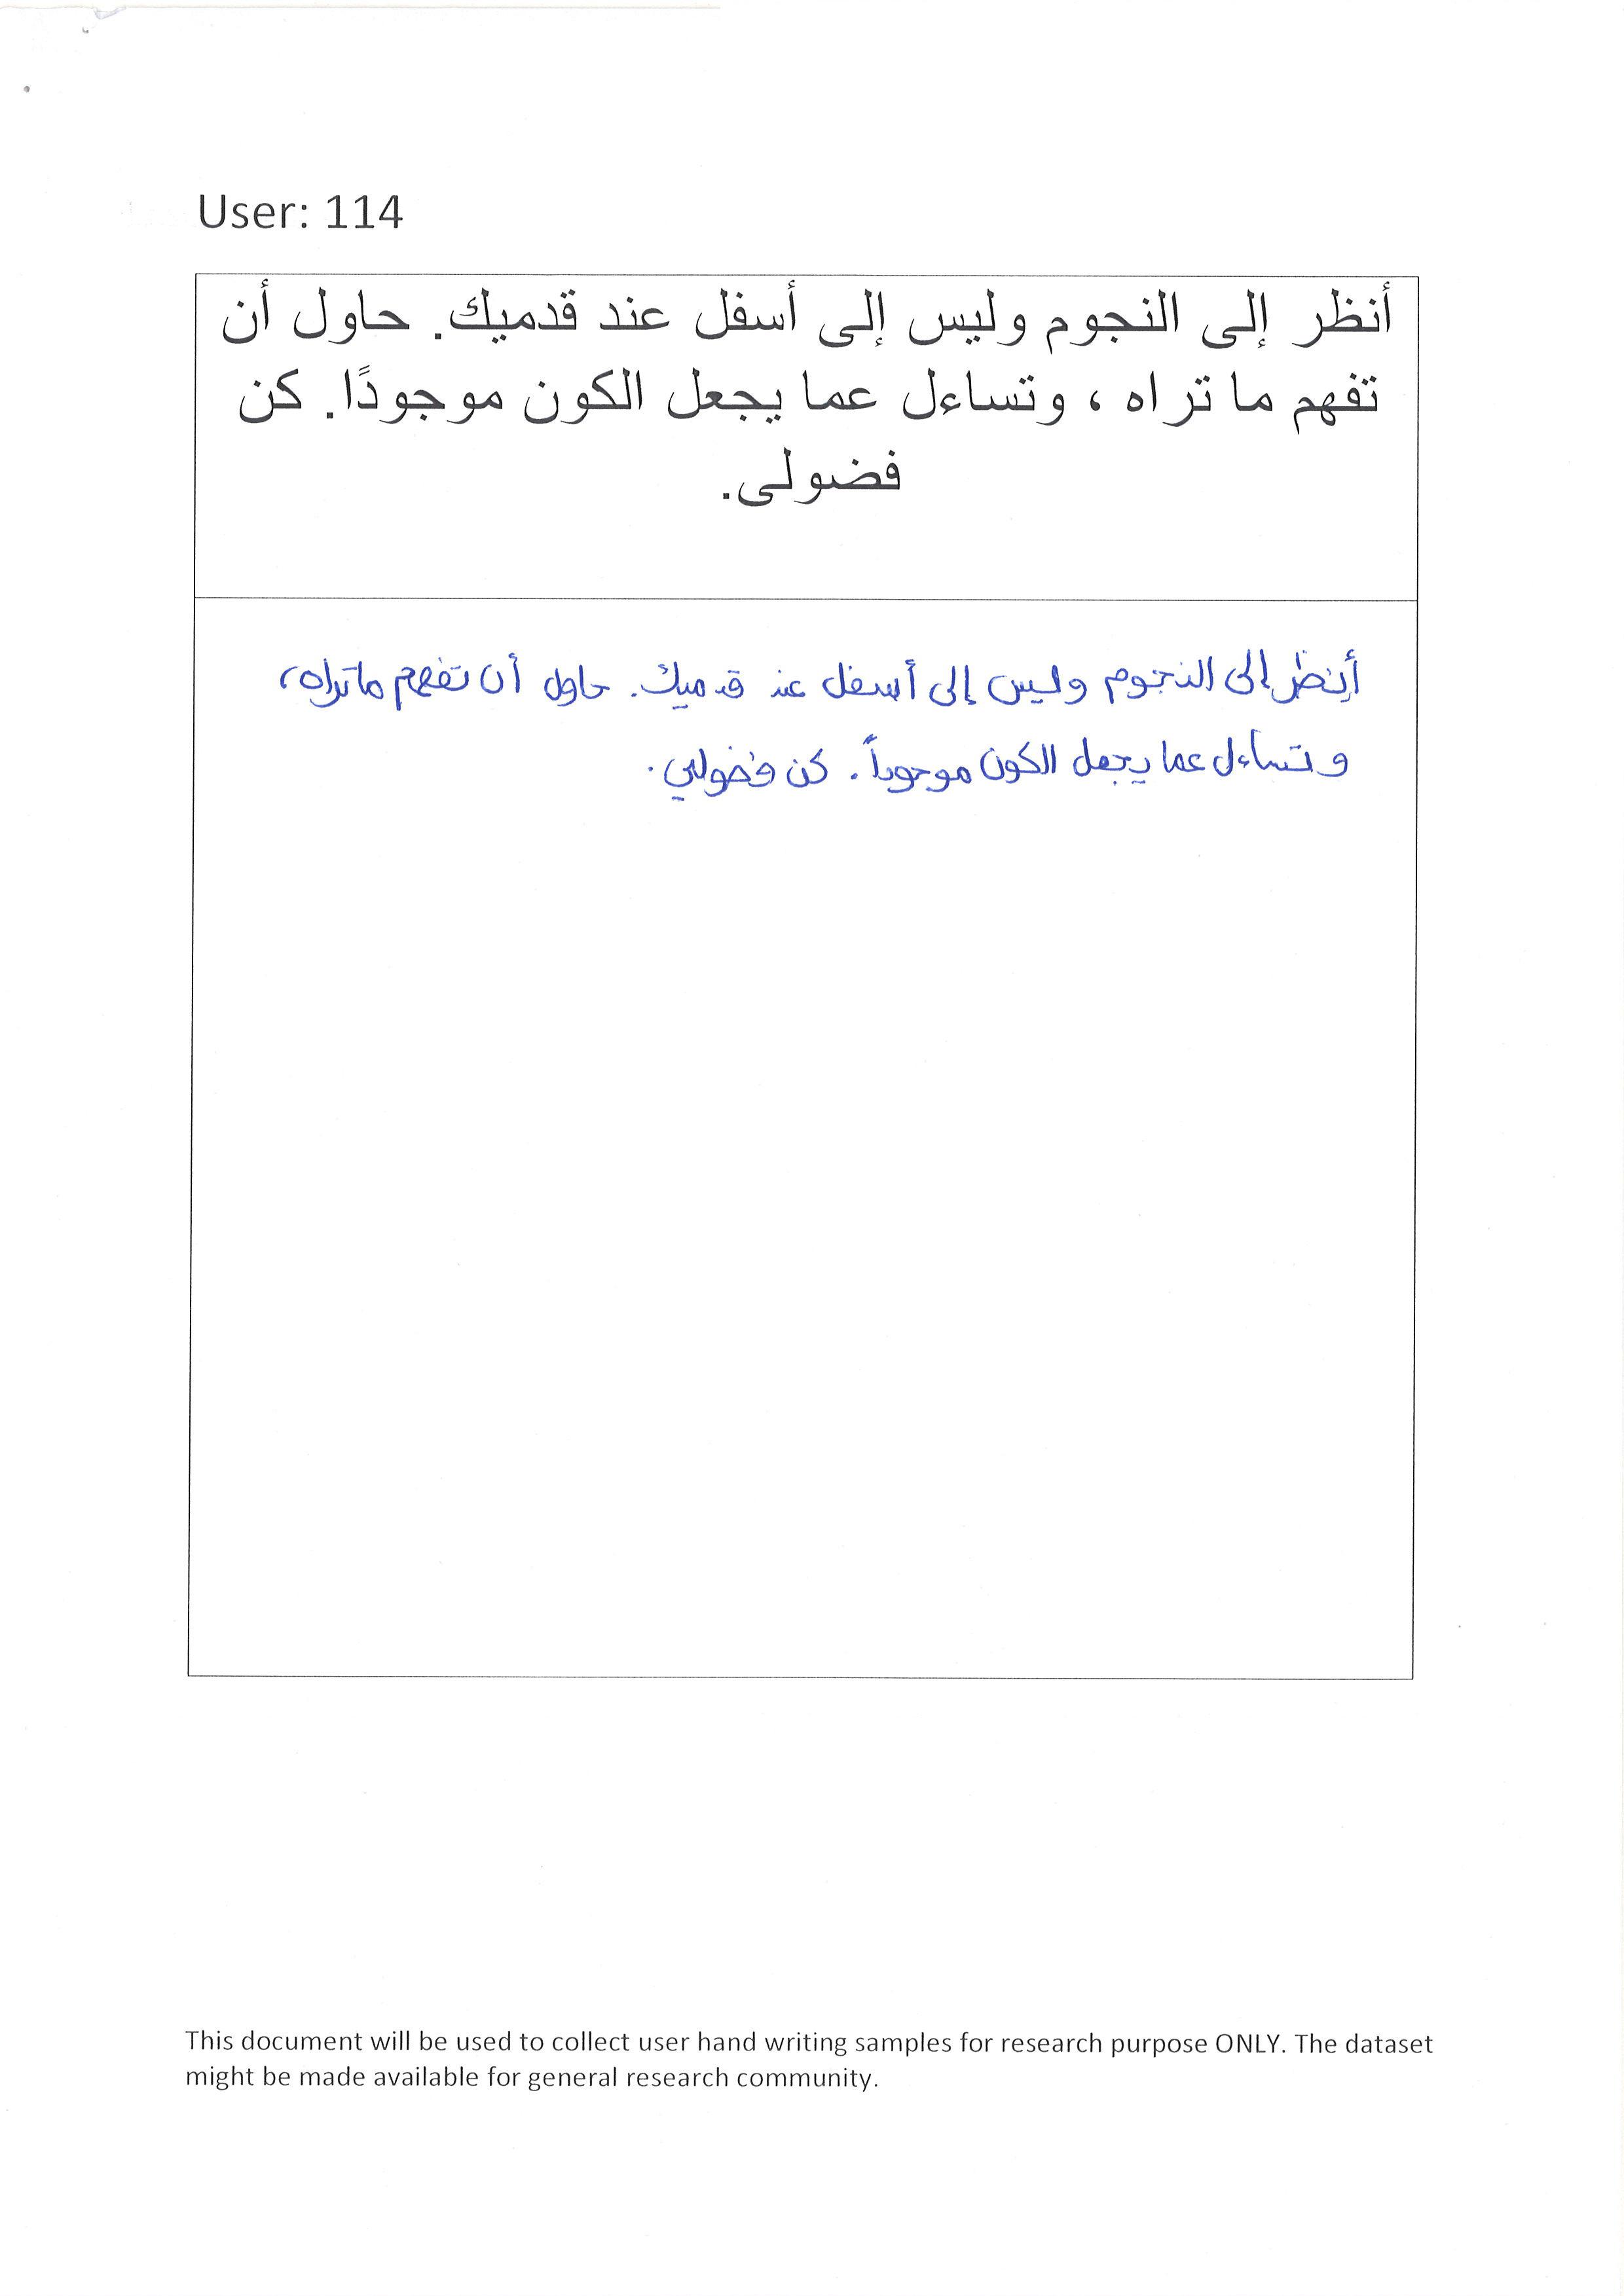 User: 114
أنظر إلى النجوم وليس إلى أسفل عند قدميك. حاول أن
تفهم ما تراه ، وتساءل عما يجعل الكون موجودًا. كن
فضولى.
أنظر إلى النجوم وليس إلى أسفل عند قدميك. حاول أن تفهم ما تراه،
وتساءل عما يجعل الكون موجوداً. كن فضولي.
This document will be used to collect user hand writing samples for research purpose ONLY. The dataset
might be made available for general research community.